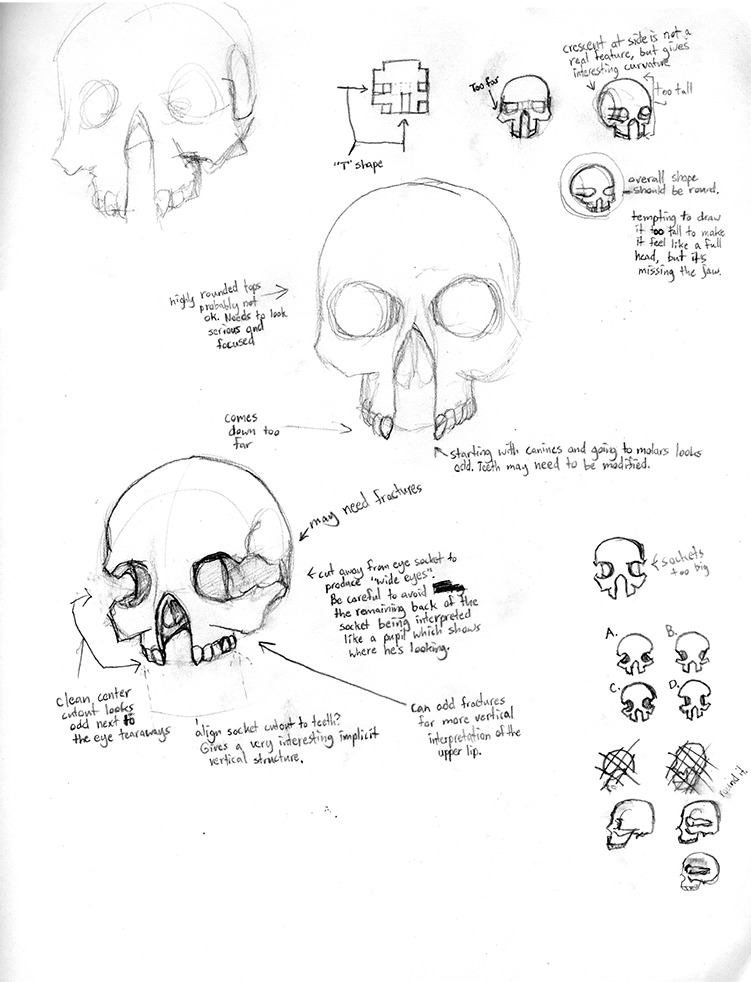 crescent at side is not a
real feature, but gives
interesting curvature
too tall
Too far
"T" shape
overall shape
should be round.
tempting to draw
it too tall to make
it feel like a full
head, but it's
missing the jaw.
highly rounded tops
probably not
ok. Needs to look
serious and
focused
comes
down too
far
starting with canines and going to molars looks
odd. Teeth may need to be modified.
may need fractures
cut away from eye socket to
produce "wide eyes".
Be careful to avoid
the remaining back of the
socket being interpreted
like a pupil which shows
where he's looking.
sockets
too big
A.
B.
C.
D.
clean center
cutout looks
odd next to
the eye tearaways
align socket cutout to teeth?
Gives a very interesting implicit
vertical structure.
can add fractures
for more vertical
interpretation of the
upper lip.
round it.